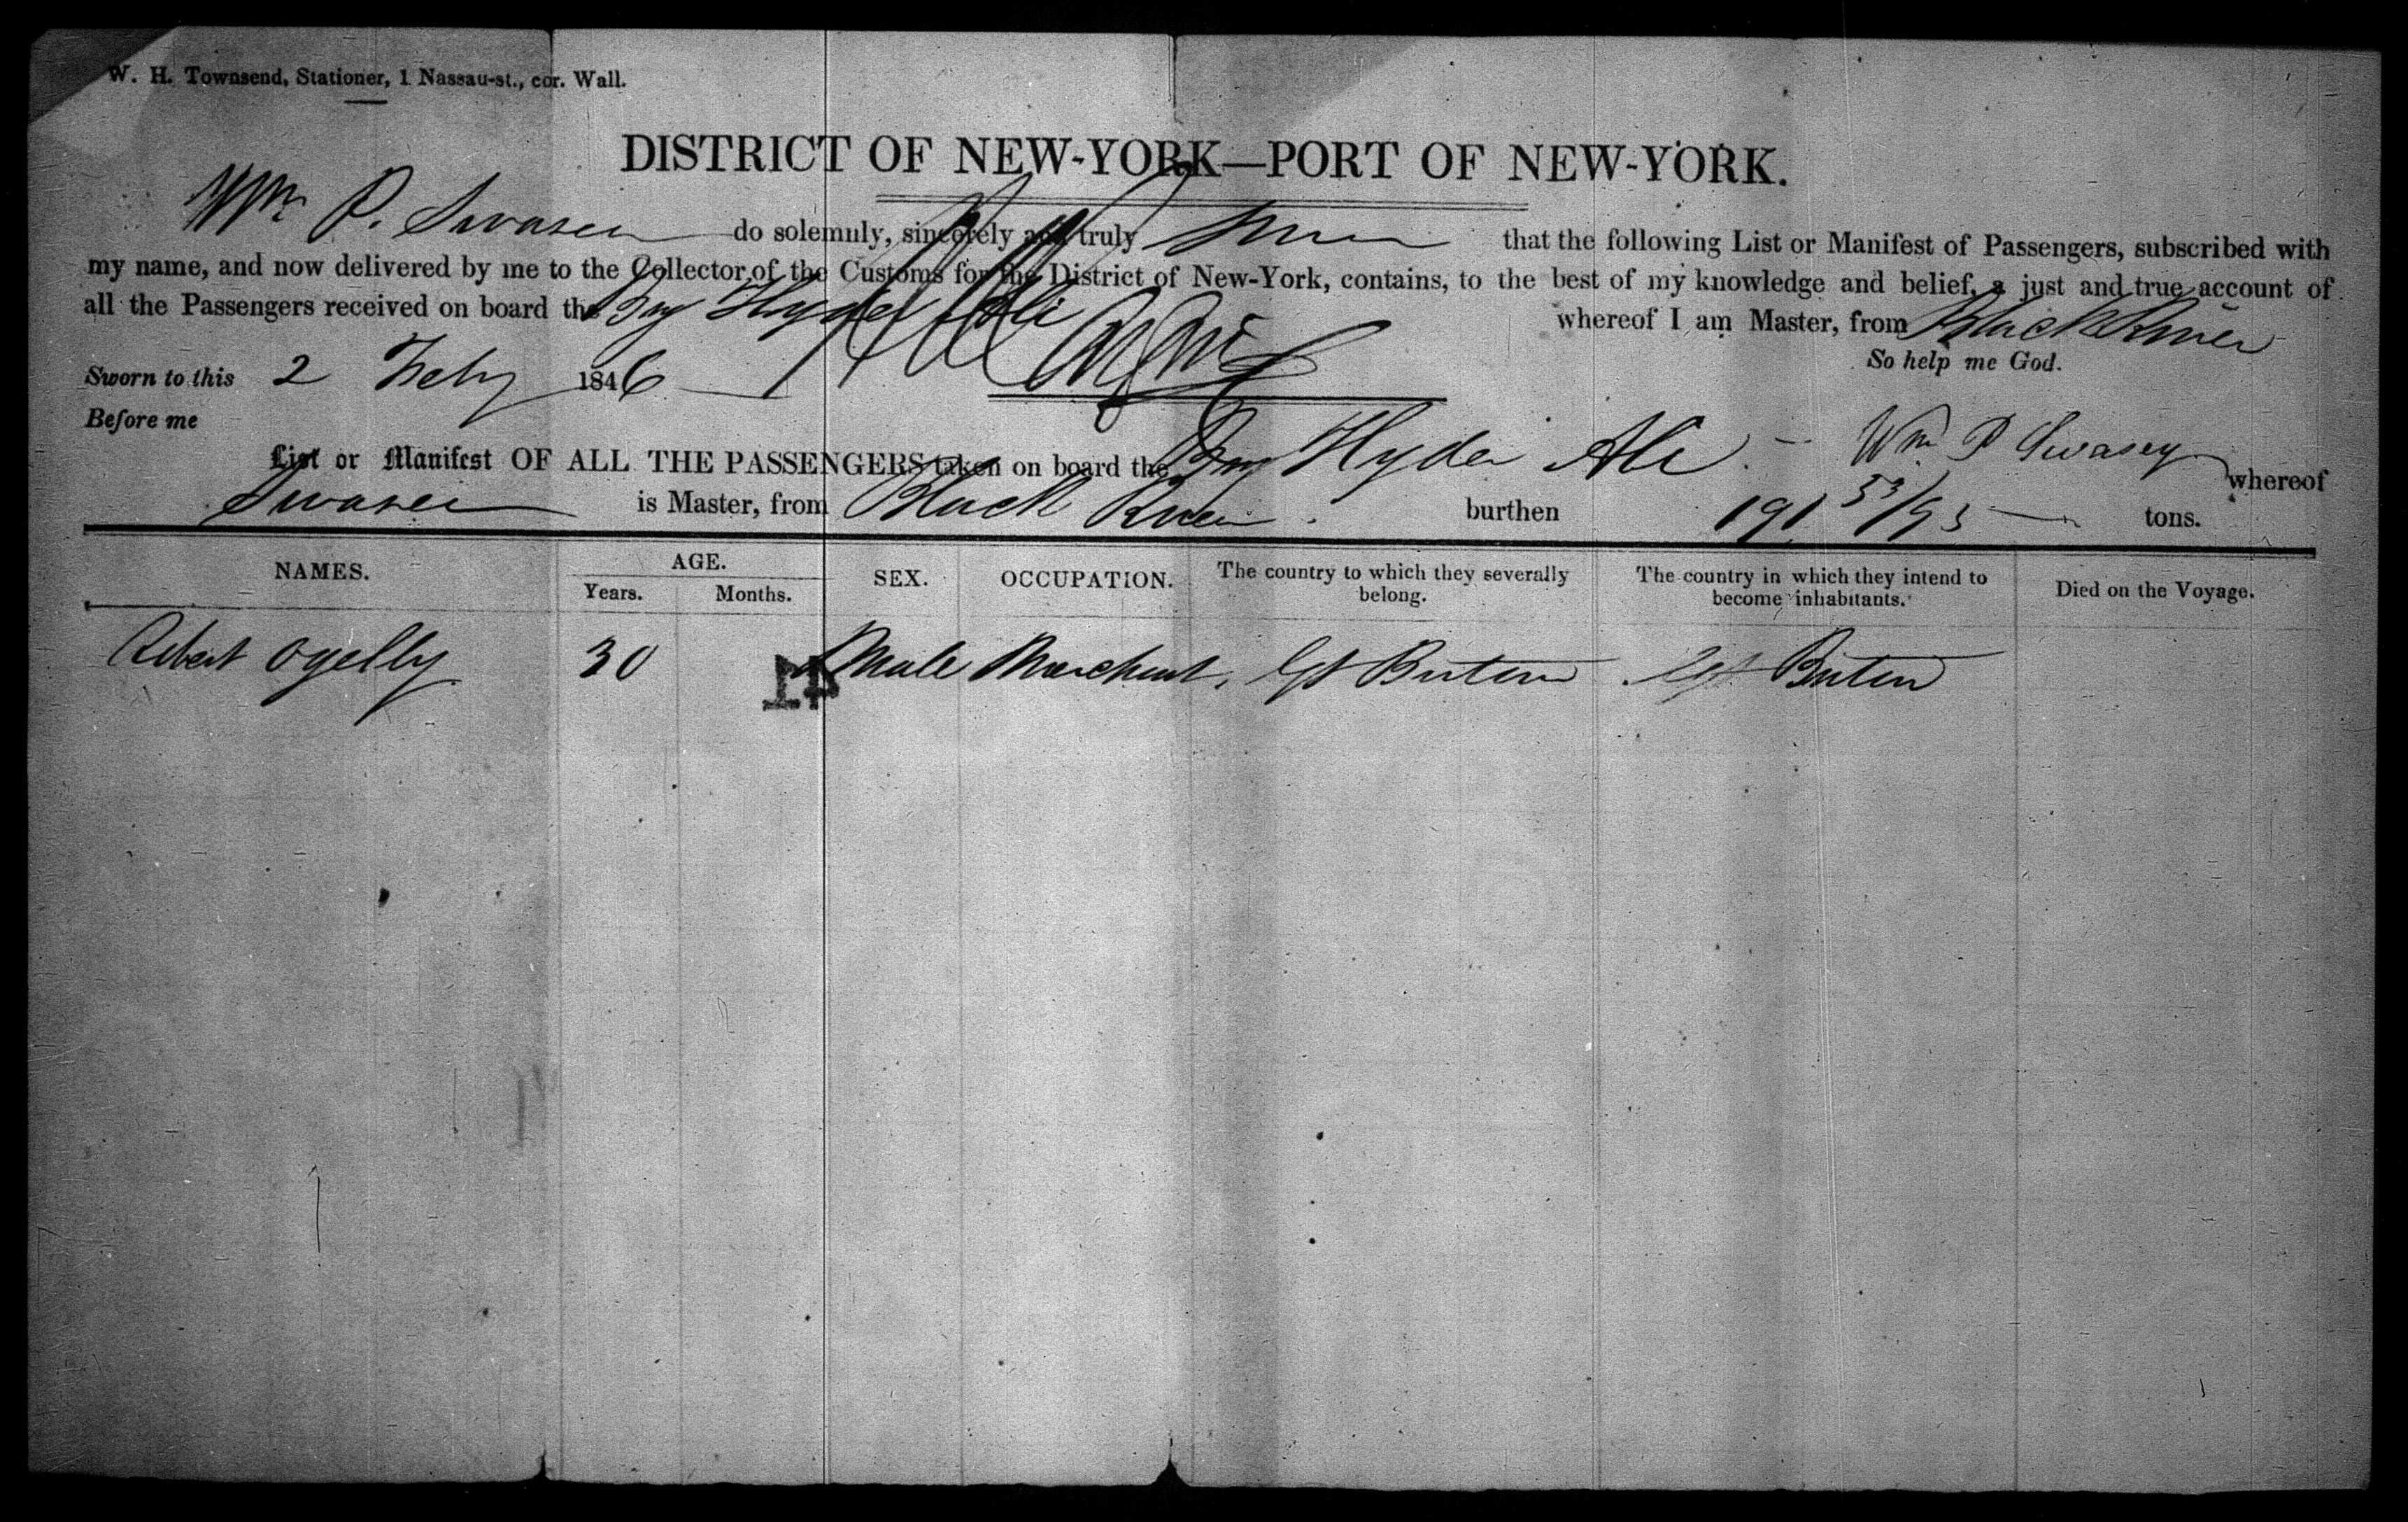 W. H. Townsend, Stationer, 1 Nassau-st., cor. Wall.
DISTRICT OF NEW-YORK—PORT OF NEW-YORK.
Wm P. Swasey do solemnly, sincerely and truly swear that the following List or Manifest of Passengers, subscribed with
my name, and now delivered by me to the Collector of the Customs for the District of New-York, contains, to the best of my knowledge and belief, a just and true account of
all the Passengers received on board the Brig Hyder Ali whereof I am Master, from Black River
So help me God.
Sworn to this 2 Feby 1846
Before me
Wm P Swasey
List or Manifest OF ALL THE PASSENGERS taken on board the Brig Hyder Ali whereof
Swasey is Master, from Black River burthen 191 53/95 tons.
NAMES. AGE. SEX. OCCUPATION. The country to which they severally belong. The country in which they intend to become inhabitants. Died on the Voyage.
Years. Months.
Robert Ogelly 30 Male Merchant, Gt Britain Gt Britain
41